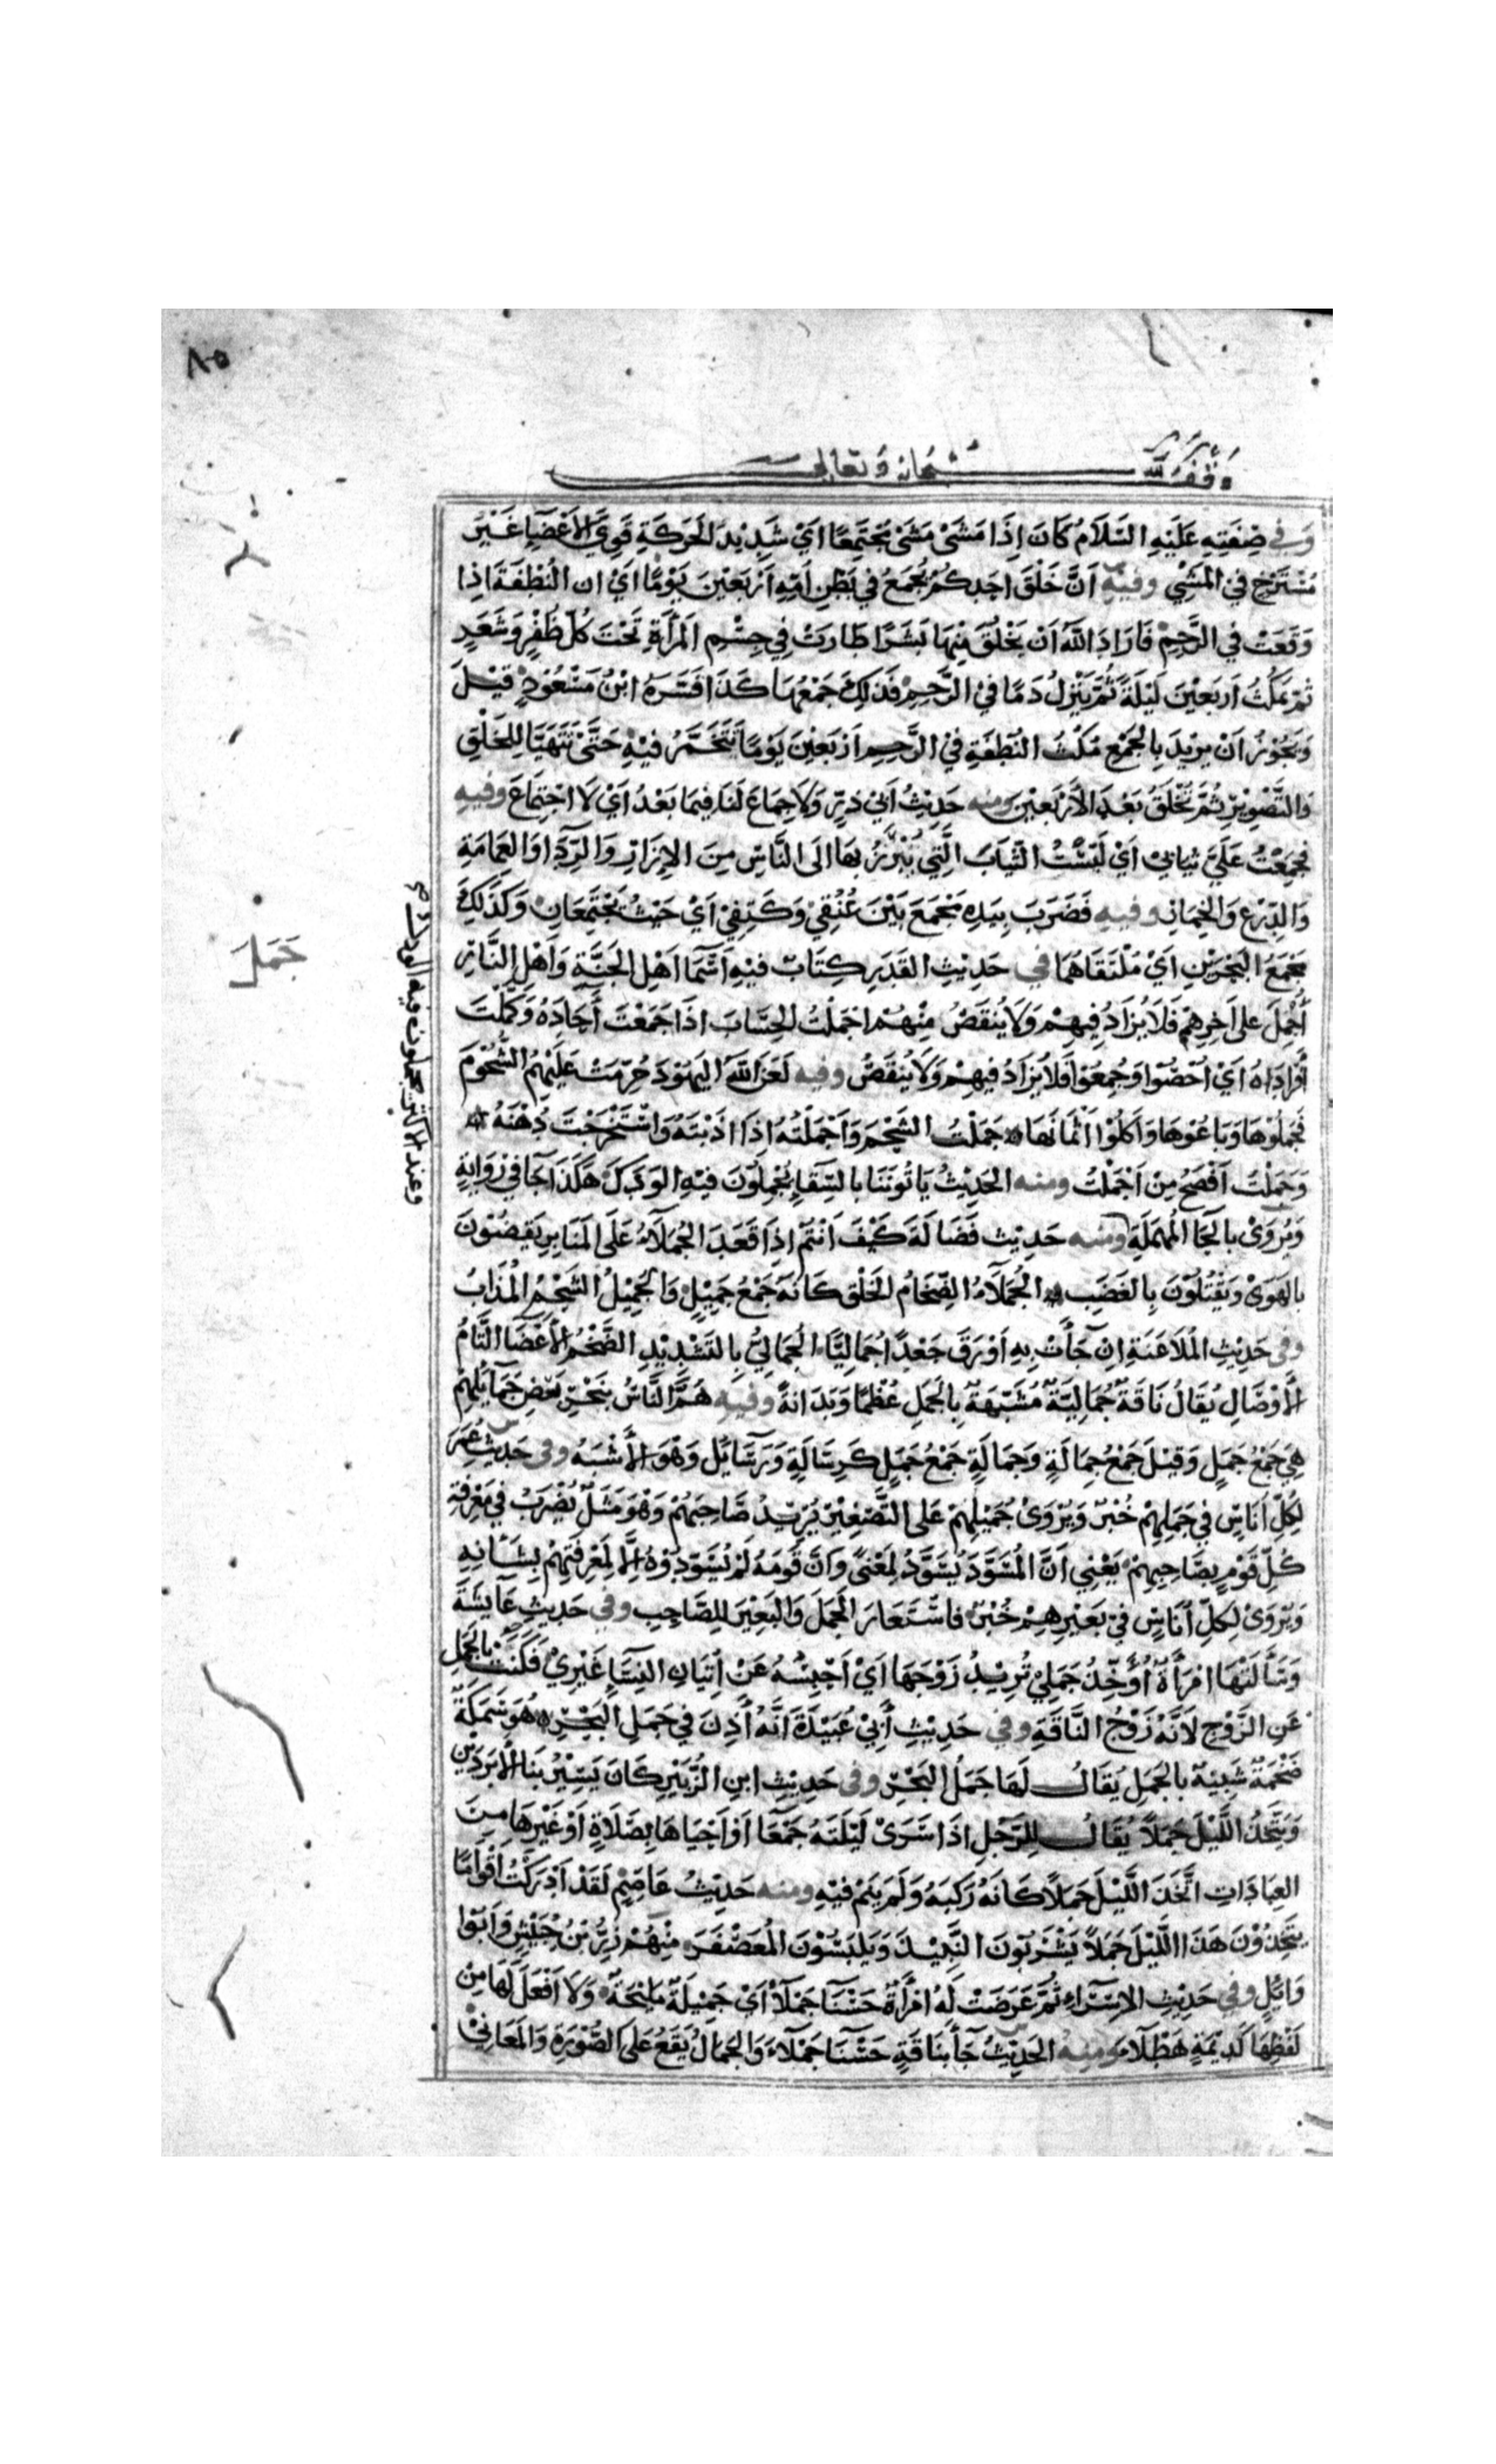 ٨٥
وقف لله سبحانه وتعالى
وَفي صِفَتِهِ عَلَيْهِ السَّلَامُ كَانَ اِذَا مَشَىْ مَشَىْ مُجْتَمِعًا اَيْ شَدِيْدَ الحَرَكَةِ قَوِيَّ الاَعْضَآءِ غَيْرَ
مُسْتَرْخٍ في المَشْيِ وفيه اَنَّ خَلْقَ اَحَدِكُمْ يُجْمَعُ في بَطْنِ اُمِّهِ اَرْبَعِيْنَ يَوْمًا اَيْ ان النُّطْفَةَ اذا
وَقَعَتْ في الرَّحِمِ فَاَرَادَ اللَّهُ اَنْ يَخْلُقَ مِنْهَا بَشَرًا طَارَتْ فِي جِسْمِ المَرْأَةِ تَحْتَ كُلِّ ظُفْرٍ وَشَعَرٍ
ثُمَّ تَمْكُثُ اَربَعِيْنَ لَيْلَةً ثُمَّ تَنْزِلُ دَمًا في الرَّحِمِ فَذلِكَ جَمْعُهَا كَذَا فَسَّرَهُ ابْنُ مَسْعُوْدٍ قِيْلَ
وَيَجُوْزُ اَنْ يريْدَ بِالجَمْعِ مُكْثَ النُّطْفَةِ في الرَّحِمِ اَرْبَعِيْنَ يَوْمًا تَتَخَمَّرُ فيْهِ حَتَّىْ تَتَهَيَّا لِلخَلْقِ
وَالتَّصْوِيْرِ ثُمَّ تُخْلَقُ بَعْدَ الاَرْبَعِيْنَ ومنه حَدِيْثُ اَبيْ ذَرٍّ وَلاَ جِمَاعَ لَنَا فِيْمَا بَعْدُ اَيْ لَا اجْتِمَاعَ وفيه
فَجَمَعْتُ عَلَيَّ ثيَابِيْ اَيْ لَبِسْتُ الثِّيَابَ الَّتِي يُبْرَزُ بهَا اِلَى النَّاسِ مِنَ الاِزَارِ وَالرِّدَآءِ وَالعِمَامَةِ
وَالدِّرْعِ وَالخِمَارِ وفيه فَضَرَبَ بِيَدِهِ مَجْمَعَ بَيْنَ عُنُقِيْ وَكَتِفِيْ اَيْ حَيْثُ يَجْتَمِعَانِ وَكَذلِكَ
مَجْمَعُ البَحْرَيْنِ اَيْ مُلْتَقَاهُمَا في حَدِيْثِ القَدَرِ كِتَابٌ فيْهِ اَسْمَآ اَهْلِ الجَنَّةِ وَاَهْلِ النَّارِ
جَمَلَ
أُجْمِلَ على اخِرِهِمْ فَلَا يُزَادُ فِيهِمْ وَلَا يُنْقَصُ مِنْهُمْ اجْمَلْتُ الحِسَابَ اذَا جَمَعْتَ آحَادَهُ وَكَمَّلْتَ
أَفْرَادَهُ اَيْ اُحْصُوْا وَجُمِعُوْا فَلَا يُزَادُ فيهِمْ وَلَا يُنْقَصُ وفيه لَعَنَ اللَّهُ اليَهُوْدَ حُرِّمَتْ عَلَيْهِمُ الشُّحُوْمَ
فَجَمَلُوْهَا وَبَاعُوْهَا وَاَكَلُوْا اَثْمَانَهَا جَمَلْتُ الشَّحْمَ وَاَجْمَلْتُهُ اِذَا اَذَبْتَهُ وَاسْتَخْرَجْتَ دُهْنَهُ
وَجَمَلْتُ اَفْصَحُ مِنْ اَجْمَلْتُ ومنه الحَدِيْثُ يَاتُونَنَا بِالسِّقَآءِ يُجْمِلُوْنَ فيْهِ الوَدَكَ هكَذَا جَآ في رِوَايَةٍ
وَيُروَىْ بِالحَآ المُهْمَلَةِ ومنه حَدِيْث فَضَالَةَ كَيْفَ اَنْتُمْ اِذَا قَعَدَ الجُمَلَآءُ عَلَى المَنَابِرِ يَقْضُوْنَ
بِالهَوَىْ وَيَقْتُلُوْنَ بِالغَضَبِ الجُمَلَآءُ الضِّخَامُ الخَلْقِ كَاَنَهُ جَمْعُ جَمِيْلٍ وَالجَمِيْلُ الشَّحْمُ المُذَابُ
وفي حَدِيْثِ المُلَاعَنَةِ اِنْ جَآءَتْ بِهِ اَوْرَقَ جَعْدًا جُمَالِيًّا الجُمَالِيُّ بِالتَّشْدِيْدِ الضَّخْمُ الاَعْضَآ التَّامُّ
الاَوْصَالِ يُقَالُ نَاقَةٌ جُمَالِيَّةٌ مُشَبَّهَةٌ بِالجَمَلِ عُظْمًا وَبَدَانةً وفيه هَمَّ النَّاسُ بِنَحْرِ بَعْضِ جَمَآئِلِهِمْ
هِيَ جَمْعُ جَمَلٍ وَقِيْلَ جَمْعُ جِمَالَةٍ وَجِمَالَةٍ جَمْعُ جَمَلٍ كَرِسَالَةٍ وَرَسَآئِلَ وَهْوَ الاَشْبَهُ وفي حَديثِ عُمَرَ
لِكُلِّ اُنَاسٍ في جَمَلِهِمْ خُبْرٌ وَيُرْوَىْ جُمَيْلِهِمْ عَلى التَّصْغِيْرِ يُرِيْدُ صَاحِبَهُمْ وَهْوَ مَثَلٌ يُضْرَبُ في مَعْرِفَةِ
كُلِّ قَوْمٍ بِصَاحِبِهِمْ يَعْنِي اَنَّ المُسَوَّدَ يُسَوَّدُ لِمَعْنًى وَاَنَّ قَوْمَهُ لَمْ يُسَوِّدُوْهُ اِلَّا لِمَعْرِفَتِهِمْ بِشَأنِهِ
وَيُرْوَىْ لِكلِّ اُنَاسٍ فيْ بَعِيْرِهِمْ خُبْرٌ فاسْتَعَارَ الجَمَلَ وَالبَعِيْرَ لِلصَّاحِبِ وفي حَدِيْثِ عَآيشَةَ
وَسَأَلَتْهَا امْرَأةٌ أُؤَخِّذُ جَمَلِيْ تُرِيْدُ زَوْجَهَا اَيْ اَحْبِسُهُ عَنْ اِتْيَانِ النِسَآءِ غَيْرِيْ فَكَنَتْ بالجَمَلِ
عَنِ الزَّوْجِ لاَنَّهُ زَوْجُ النَّاقَةِ وفي حَدِيْثِ أَبيْ عُبَيْدَةَ اَنَّهُ أَذِنَ في جَمَلِ البَحْرِ هُوَ سَمَكَةٌ
ضَخْمَةٌ شَبِيْهَةٌ بِالجَمَلِ يُقَالُ لَهَا جَمَلُ البَحْرِ وفي حَدِيْثِ ابنِ الزُّبَيْرِ كَانَ يَسِيْرُ بنَا الاَبْرَدَيْنِ
وَيَتَّخِذُ اللَّيْلَ جَمَلاً يُقَالُ لِلرَّجُلِ اِذَا سَرَىْ لَيْلَتَهُ جَمْعَآ اَوْ اَحْيَاهَا بِصَلَاةٍ اَوْ غَيْرِهَا مِنَ
العِبَادَاتِ اتَّخَذَ اللَّيْلَ جَمَلاً كَاَنَّهُ رَكِبَهُ وَلَمْ يَنَمْ فيْهِ ومنه حَدِيْثُ عَاصِمٍ لَقَدْ اَدْرَكْتُ اَقْوَامًا
يَتَّخِذُوْنَ هَذَا اللَّيْلَ جَمَلاً يَشْرَبُوْنَ النَّبِيْذَ وَيَلبَسُوْنَ المُعَصْفَرَ مِنْهُمْ زِرُّ بْنُ حُبَيْشٍ وَاَبُوْا
وَائِلٍ وفي حَدِيْثِ الاِسْرَآءِ ثُمَّ عَرَضَتْ لَهُ امْرَأَةٌ حَسْنَآ جَمْلَآءُ اَيْ جَمِيْلَةٌ مَلِيْحَةٌ وَلَا اَفْعَلَ لَهَا مِنْ
لَفْظِهَا كَدِيْمَةٍ هَطْلَآءَ ومنه الحَدِيْثُ جَآءَ بِنَاقَةٍ حَسْنَآ جَمْلَآءَ وَالجَمَالُ يَقَعُ عَلى الصُّوْرَةِ وَالمَعَانِيْ